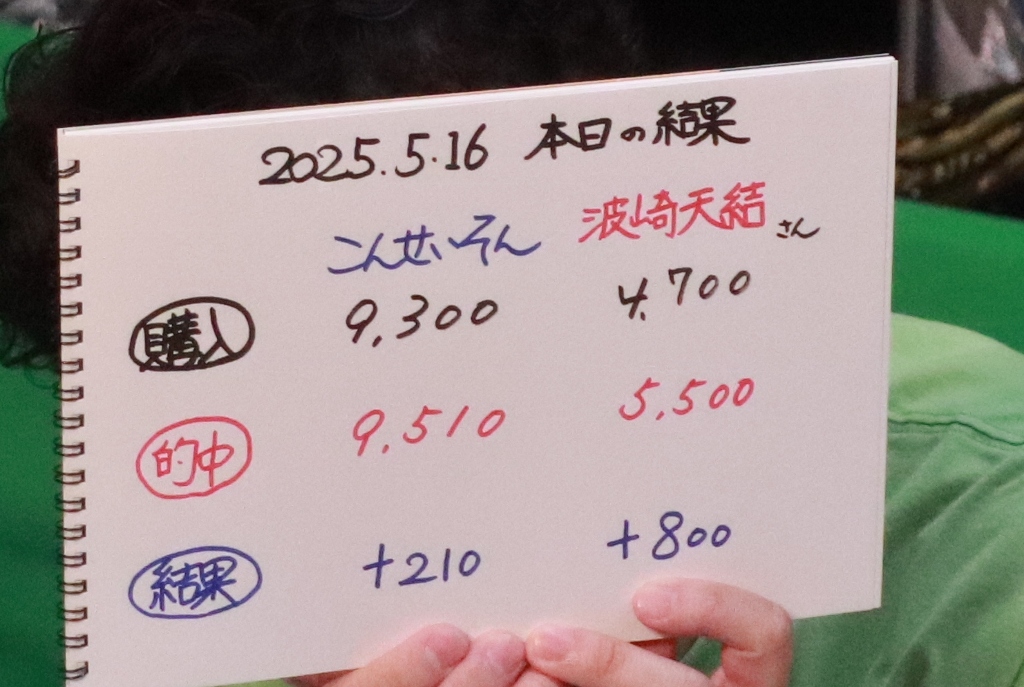 2025.5.16 本日の結果
こんせいそん 波崎天結さん
購入 9,300 4,700
的中 9,510 5,500
結果 +210 +800